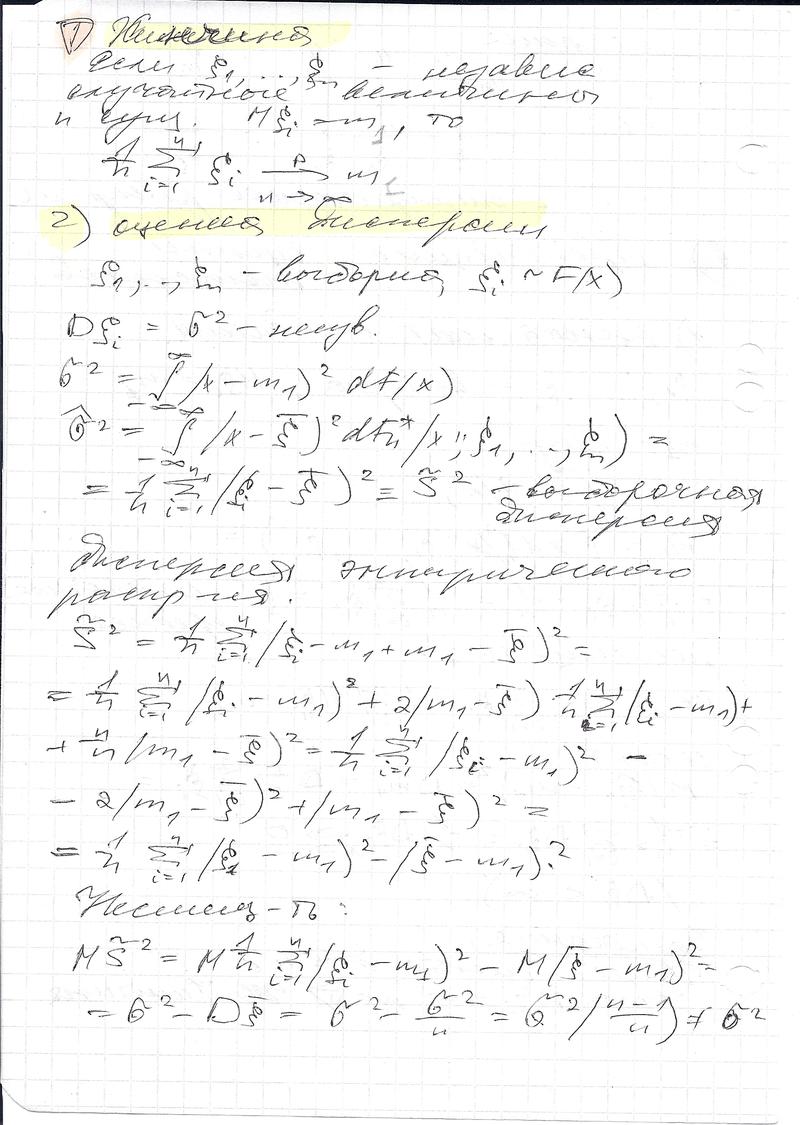 Т Хинчина
Если ξ1, ..., ξn – независ
случайные величины
и сущ. Mξi = m1, то
1/n ∑_{i=1}^{n} ξi →^{P}_{n→∞} m1
2) оценка дисперсии
ξ1, .., ξn – выборка, ξi ~ F(x)
Dξi = σ² – неизв.
σ² = ∫_{-∞}^{∞} (x – m1)² dF(x)
σ̂² = ∫_{-∞}^{∞} (x – ξ̄)² dFn*(x; ξ1, .., ξn) =
= 1/n ∑_{i=1}^{n} (ξi – ξ̄)² = S̃² – выборочная
дисперсия
дисперсия эмпирического
распр-ия.
S̃² = 1/n ∑_{i=1}^{n} (ξi – m1 + m1 – ξ̄)² =
= 1/n ∑_{i=1}^{n} (ξi – m1)² + 2(m1 – ξ̄) 1/n ∑_{i=1}^{n} (ξi – m1) +
+ n/n (m1 – ξ̄)² = 1/n ∑_{i=1}^{n} (ξi – m1)² –
– 2(m1 – ξ̄)² + (m1 – ξ̄)² =
= 1/n ∑_{i=1}^{n} (ξi – m1)² – (ξ̄ – m1)²
Несмещ-ть:
MS̃² = M 1/n ∑_{i=1}^{n} (ξi – m1)² – M(ξ̄ – m1)² =
= σ² – Dξ̄ = σ² – σ²/n = σ² (n–1/n) ≠ σ²